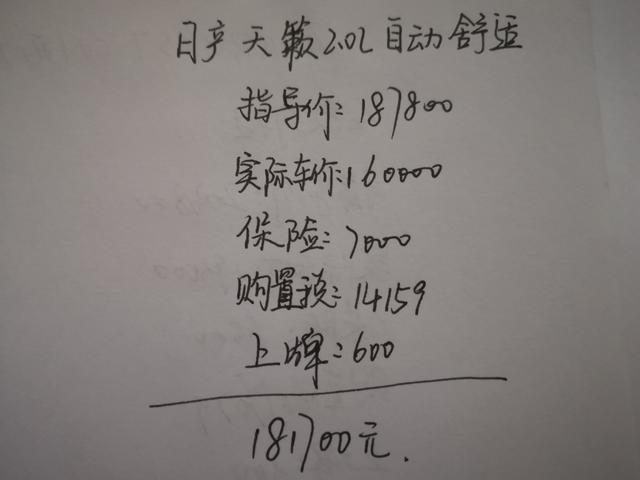 日产天籁2.0L自动舒适
指导价:187800
实际车价:160000
保险:7000
购置税:14159
上牌:600
181700元.